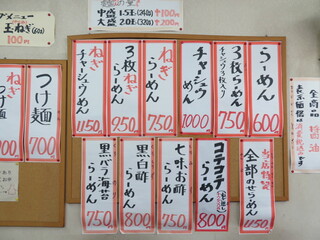 メニュー
玉ねぎ(60g)
100円
中盛 1.5玉(240g) ↑100円
大盛 2.0玉(320g) ↑200円
らーめん
600
3枚らーめん
チャーシュウ3枚入り
750
チャーシュウめん
1000
ねぎらーめん
750
3枚ねぎらーめん
950
ねぎチャーシュウめん
1150
つけ麺
700
ねぎつけ麺
当店特製
全部のせらーめん
1150
コテコテらーめん
800
七味・お酢らーめん
750
黒白酢らーめん
800
黒バラ海苔らーめん
750
全商品
醤油